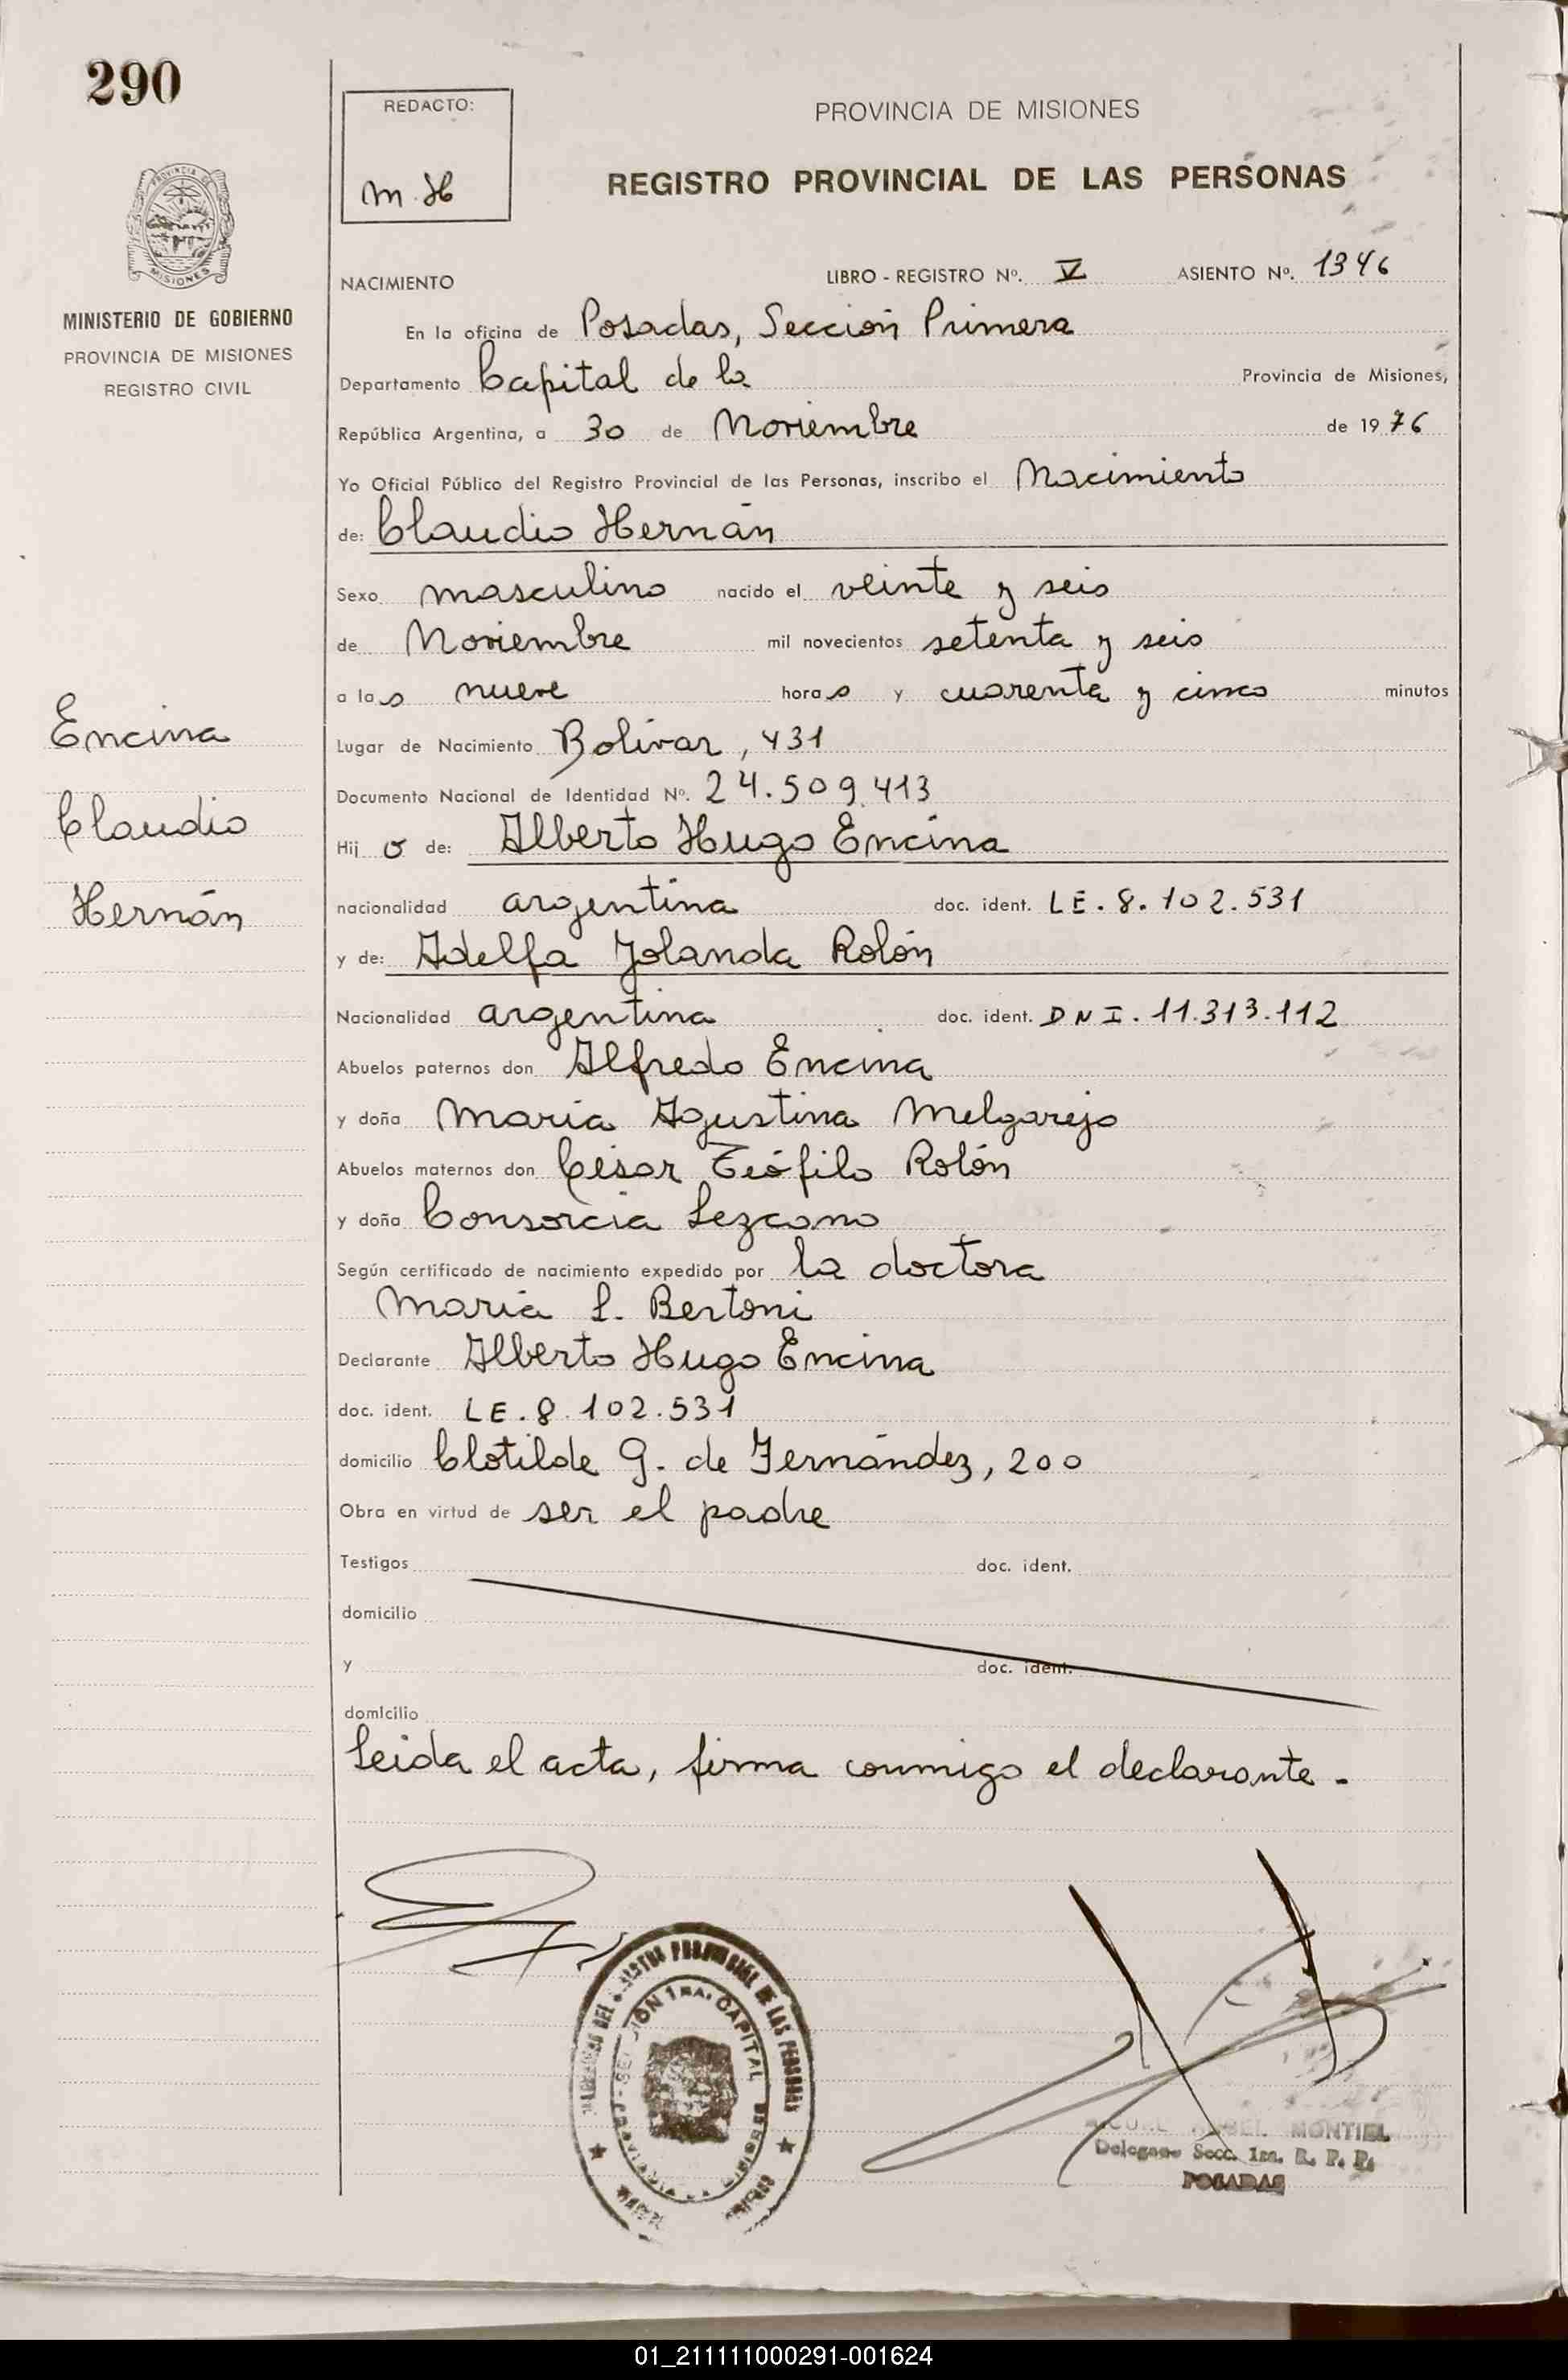 290
REDACTO:
M.H
PROVINCIA DE MISIONES
REGISTRO PROVINCIAL DE LAS PERSONAS
MISIONES
MINISTERIO DE GOBIERNO
PROVINCIA DE MISIONES
REGISTRO CIVIL
NACIMIENTO LIBRO - REGISTRO Nº. V ASIENTO Nº. 1346
En la oficina de Posadas, Sección Primera
Departamento Capital de la Provincia de Misiones,
República Argentina, a 30 de Noviembre de 1976
Yo Oficial Público del Registro Provincial de las Personas, inscribo el Nacimiento
de: Claudio Hernán
Sexo masculino nacido el veinte y seis
de Noviembre mil novecientos setenta y seis
a las nueve horas y cuarenta y cinco minutos
Encina
Claudio
Hernán
Lugar de Nacimiento Bolívar, 431
Documento Nacional de Identidad Nº. 24.509.413
Hijo de: Alberto Hugo Encina
nacionalidad argentina doc. ident. LE. 8.102.531
y de: Adelfa Yolanda Rolón
Nacionalidad argentina doc. ident. DNI. 11.313.112
Abuelos paternos don Alfredo Encina
y doña María Agustina Melgarejo
Abuelos maternos don César Teófilo Rolón
y doña Consorcia Lezcano
Según certificado de nacimiento expedido por la doctora
María L. Bertoni
Declarante Alberto Hugo Encina
doc. ident. LE. 8.102.531
domicilio Clotilde G. de Fernández, 200
Obra en virtud de ser el padre
Testigos doc. ident.
domicilio
y doc. ident.
domicilio
Leida el acta, firma conmigo el declarante.
PROVINCIAL DE LAS PERSONAS
SECCION 1RA. CAPITAL
MONTIEL
Delegado Secc. 1ra. R. P. P.
POSADAS
01_211111000291-001624